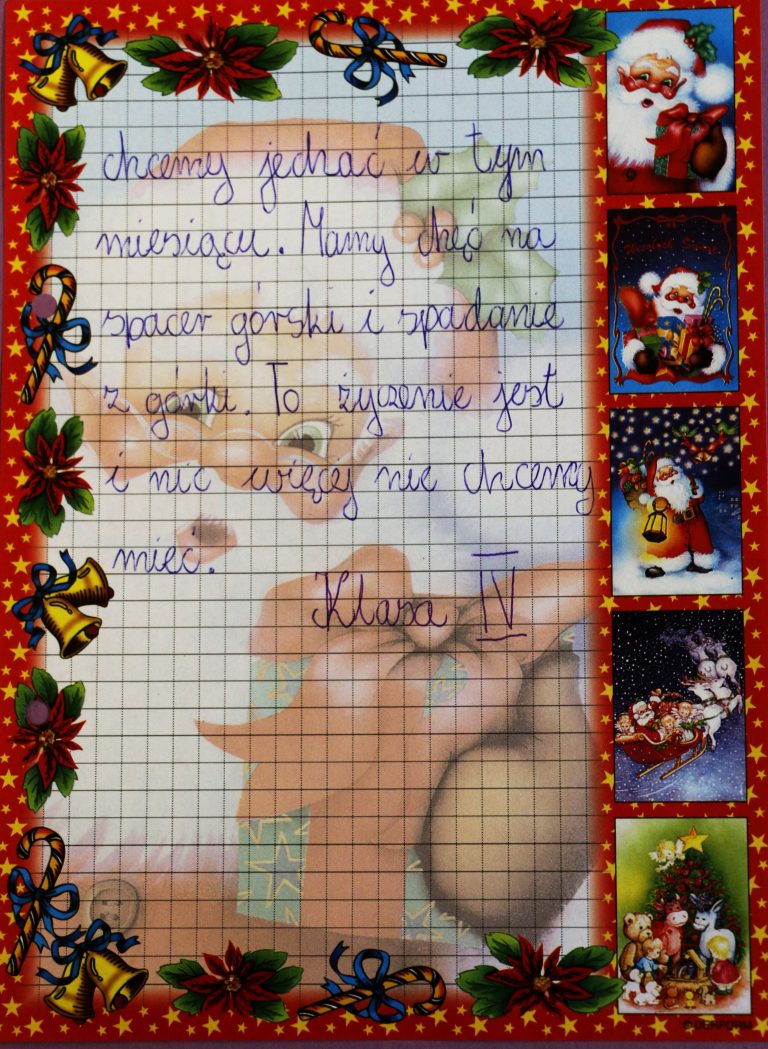 chcemy jechać w tym
miesiącu. Mamy chęć na
spacer górski i spadanie
z górki. To życzenie jest
i nic więcej nie chcemy
mieć.
Klasa IV